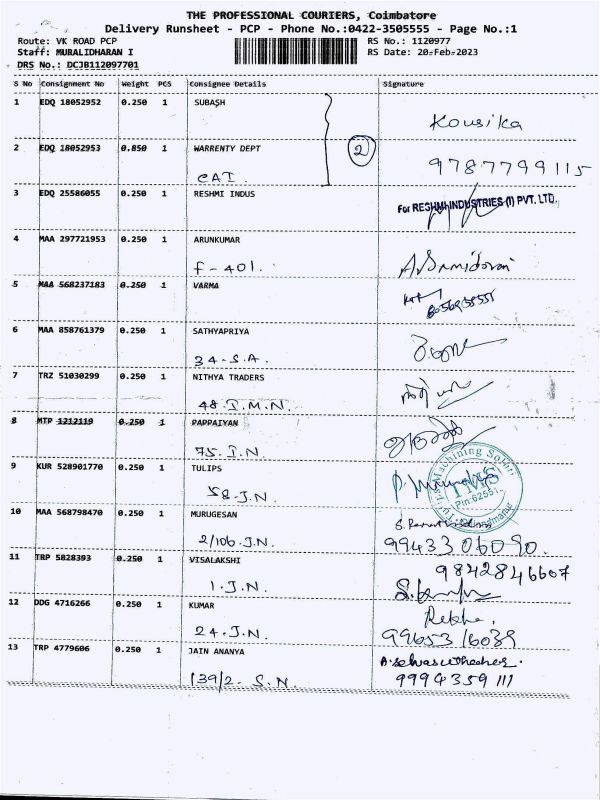 THE PROFESSIONAL COURIERS, Coimbatore
Delivery Runsheet - PCP - Phone No.:0422-3505555 - Page No.:1
Route: VK ROAD PCP RS No.: 1120977
Staff: MURALIDHARAN I RS Date: 20-Feb-2023
DRS No.: DCJB112097701
S No Consignment No Weight PCS Consignee Details Signature
1 EDQ 18052952 0.250 1 SUBASH
Kousika
2 EDQ 18052953 0.850 1 WARRENTY DEPT 2
CAT. 9787799115
3 EDQ 25586055 0.250 1 RESHMI INDUS
For RESHMI INDUSTRIES (I) PVT. LTD.
4 MAA 297721953 0.250 1 ARUNKUMAR
F-401.
5 MAA 568237183 0.250 1 VARMA
6 MAA 858761379 0.250 1 SATHYAPRIYA
34-S.A.
7 TRZ 51030299 0.250 1 NITHYA TRADERS
48-I.M.N.
8 MTP 1212119 0.250 1 PAPPAIYAN
75-I.N.
9 KUR 528901770 0.250 1 TULIPS
58-J.N.
10 MAA 568798470 0.250 1 MURUGESAN
2/106-J.N. 99433 06090.
11 TRP 5828393 0.250 1 VISALAKSHI
1.J.N. 9842846607
12 DDG 4716266 0.250 1 KUMAR
Rekha.
24-J.N. 9965316039
13 TRP 4779606 0.250 1 JAIN ANANYA
139/2- S.N. 9994359111